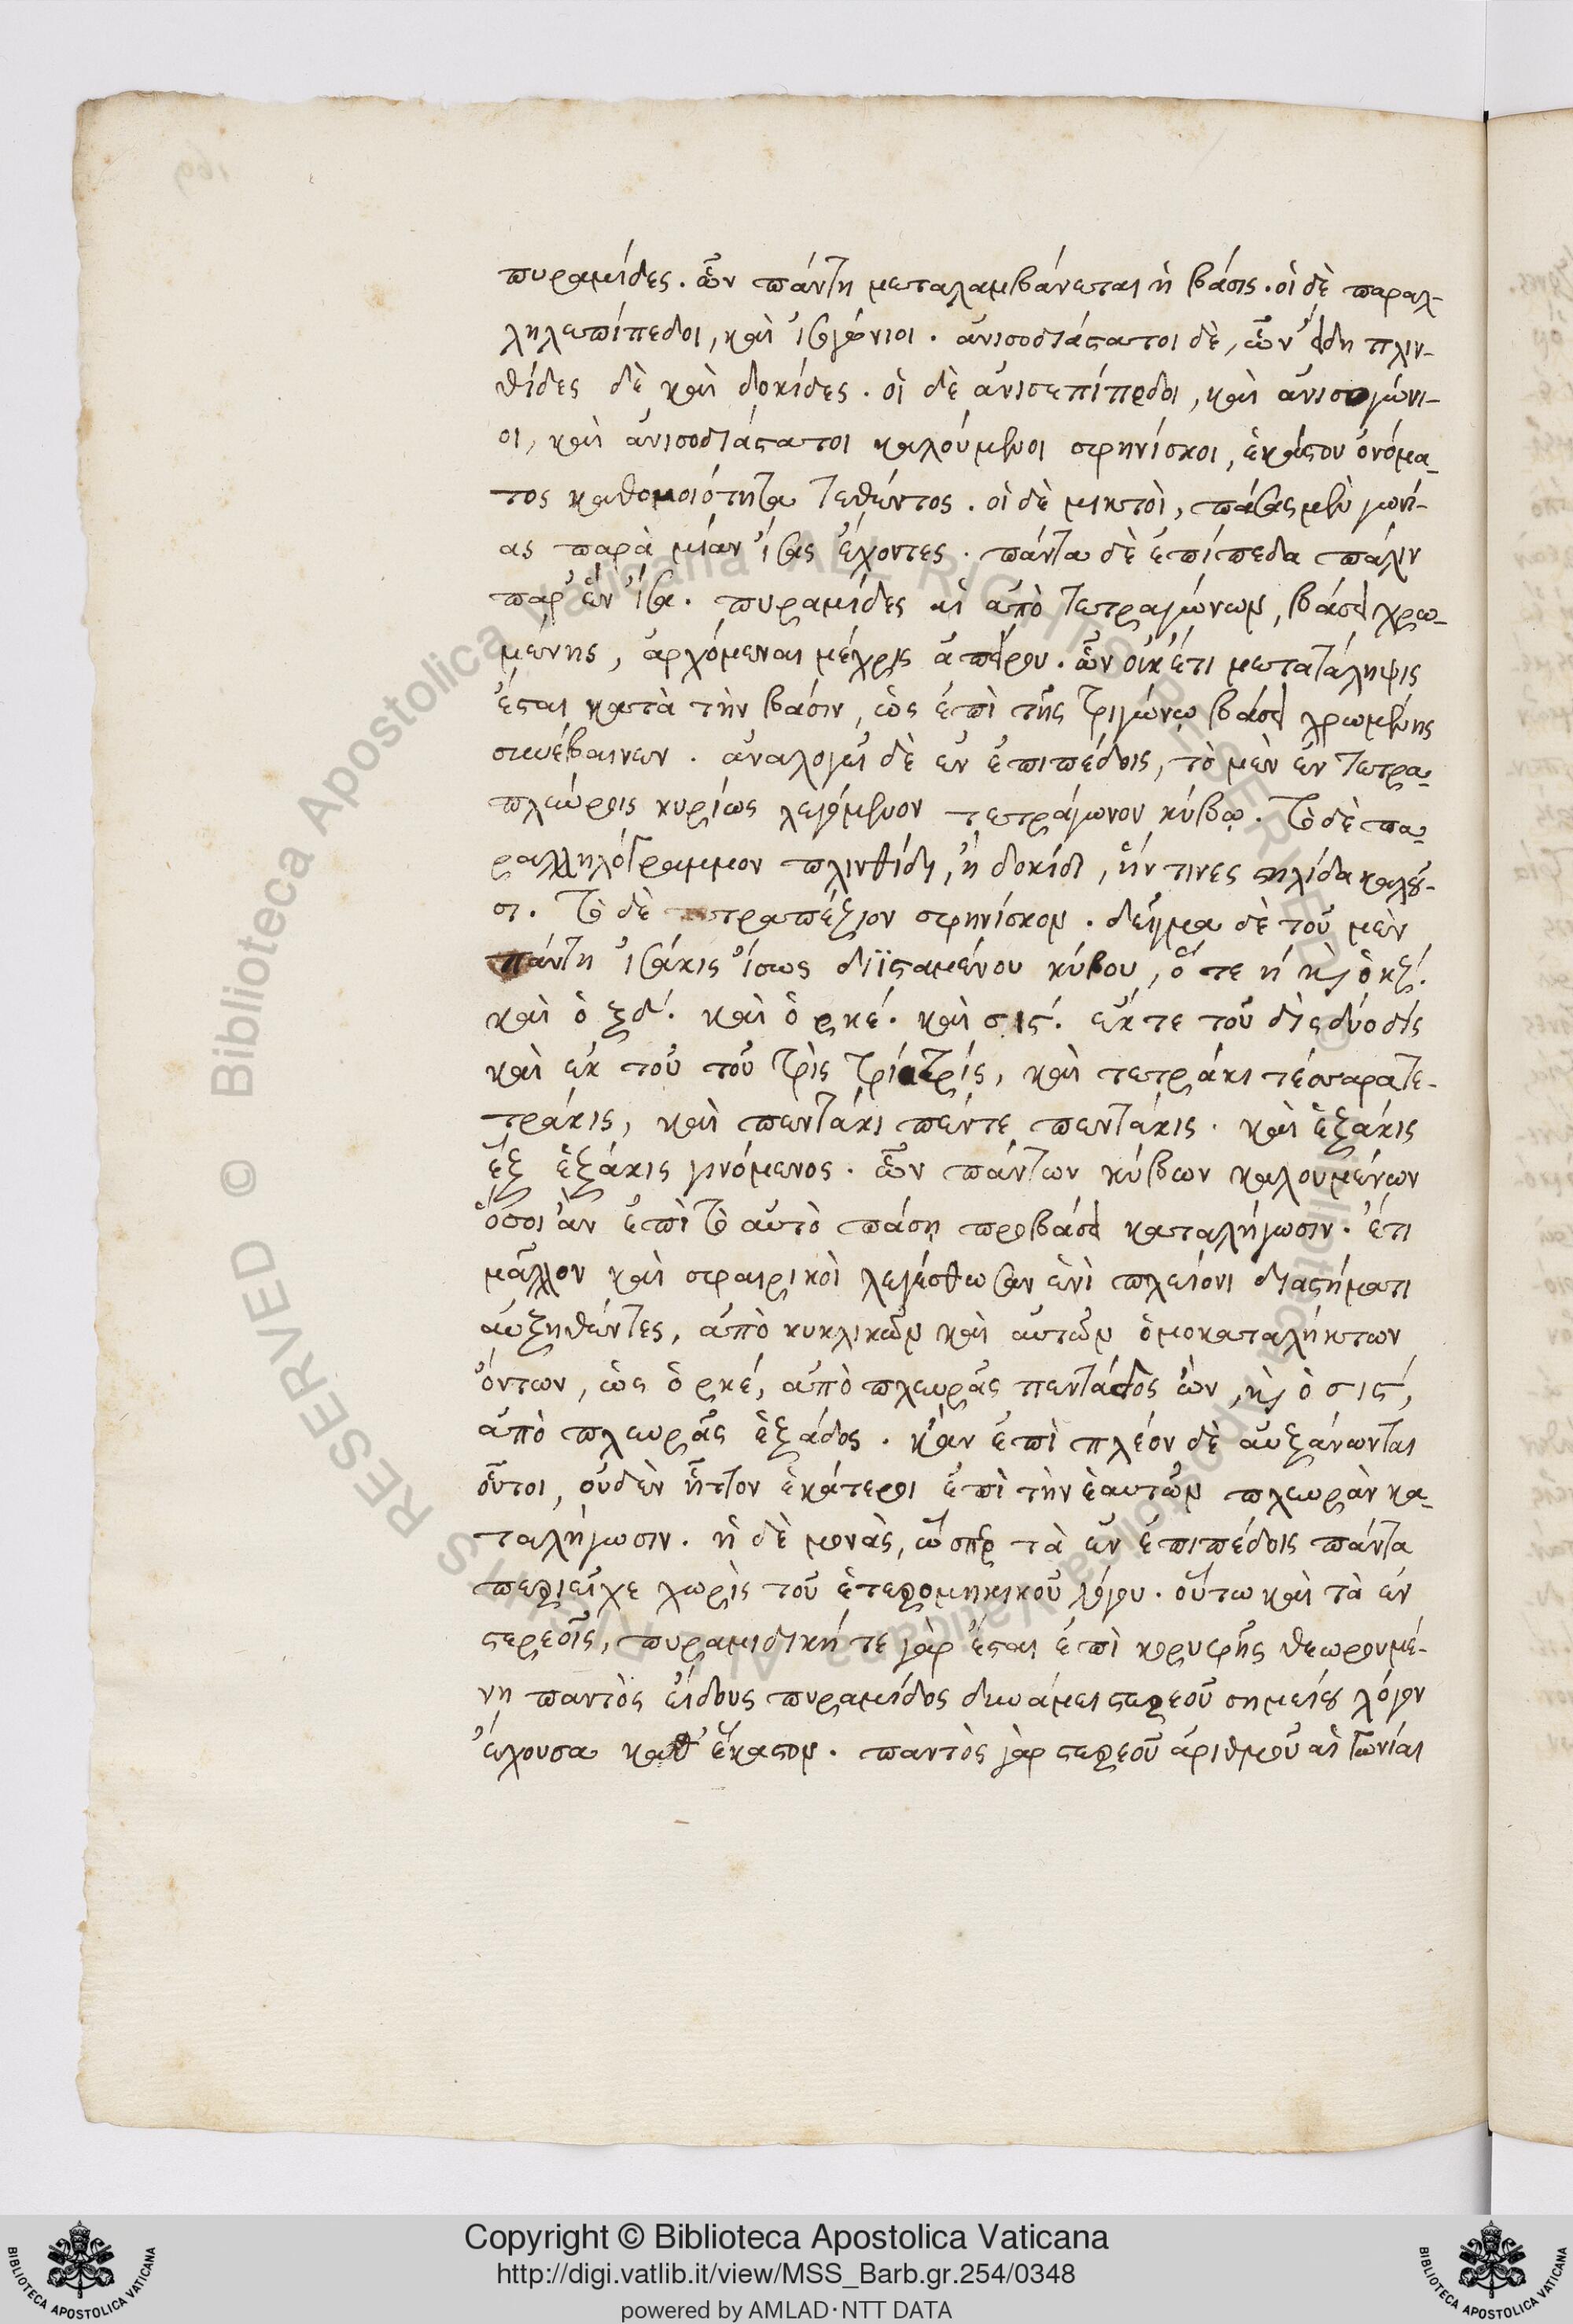 πυραμίδες. ὧν πάντη μεταλαμβάνεται ἡ βάσις. οἱ δὲ παραλ-
ληλεπίπεδοι, καὶ ἰσογώνιοι. ἀνισοδιάστατοι δὲ, ὧν εἴδη πλιν-
θίδες δὲ καὶ δοκίδες. οἱ δὲ ἀνισεπίπεδοι, καὶ ἀνισογώνι-
οι, καὶ ἀνισοδιάστατοι καλούμενοι σφηνίσκοι, ἑκάστου ὀνόμα-
τος καθομοιότητα τεθέντος. οἱ δὲ μικτοὶ, πάσας μὲν γωνί-
ας παρὰ μίαν ἴσας ἔχοντες. πάντα δὲ ἐπίπεδα πάλιν
παρ' ἓν ἴσα. πυραμίδες αἱ ἀπὸ τετραγώνων, βάσει χρω-
μένης, ἀρχόμεναι μέχρις ἀπείρου. ὧν οὐκέτι μετατάληψις
ἔσται κατὰ τὴν βάσιν, ὡς ἐπὶ τῆς τριγώνῳ βάσει χρωμένης
συνέβαινεν. ἀναλογεῖ δὲ ἐν ἐπιπέδοις, τὸ μὲν ἐν τετρα-
πλεύροις κυρίως λεγόμενον τετράγωνον κύβῳ. τὸ δὲ πα-
ραλληλόγραμμον πλινθίδι, ἢ δοκίδι, ἥν τινες στηλίδα καλοῦ-
σι. τὸ δὲ τετραπέζιον σφηνίσκον. δεῖγμα δὲ τοῦ μὲν
πάντη ἰσάκις ἴσως διϊσταμένου κύβου, ὅ τε η καὶ ὁ κζ.
καὶ ὁ ξδ. καὶ ὁ ρκέ. καὶ σις. ἔκ τε τοῦ δὶς δύο δίς
καὶ ἐκ τοῦ τοῦ τρὶς τρία τρίς, καὶ τετράκι τέσσαρα τε-
τράκις, καὶ πεντάκι πέντε πεντάκις. καὶ ἑξάκις
ἓξ ἑξάκις γινόμενος. ὧν πάντων κύβων καλουμένων
ὅσοι ἂν ἐπὶ τὸ αὐτὸ πάσῃ προβάσει καταλήγωσιν. ἔτι
μᾶλλον καὶ σφαιρικοὶ λεγέσθωσαν ἑνὶ πλείονι διαστήματι
αὐξηθέντες, ἀπὸ κυκλικῶν καὶ αὐτῶν ὁμοκαταλήκτων
ὄντων, ὡς ὁ ρκέ, ἀπὸ πλευρᾶς πεντάδος ὢν, καὶ ὁ σις,
ἀπὸ πλευρᾶς ἑξάδος. κἂν ἐπὶ πλέον δὲ αὐξάνωνται
οὗτοι, οὐδὲν ἧττον ἑκάτεροι ἐπὶ τὴν ἑαυτῶν πλευρὰν κα-
ταλήγωσιν. ἡ δὲ μονὰς, ὥσπερ τὰ ἐν ἐπιπέδοις πάντα
περιεῖχε χωρὶς τοῦ ἑτερομηκικοῦ λόγου. οὕτω καὶ τὰ ἐν
στερεοῖς, πυραμιδική τε γὰρ ἔσται ἐπὶ κορυφῆς θεωρουμέ-
νη παντὸς εἴδους πυραμίδος δυνάμει στερεοῦ σημείου λόγον
ἔχουσα καθ' ἕκαστον. παντὸς γὰρ στερεοῦ ἀριθμοῦ αἱ γωνίαι
Copyright © Biblioteca Apostolica Vaticana
http://digi.vatlib.it/view/MSS_Barb.gr.254/0348
powered by AMLAD·NTT DATA